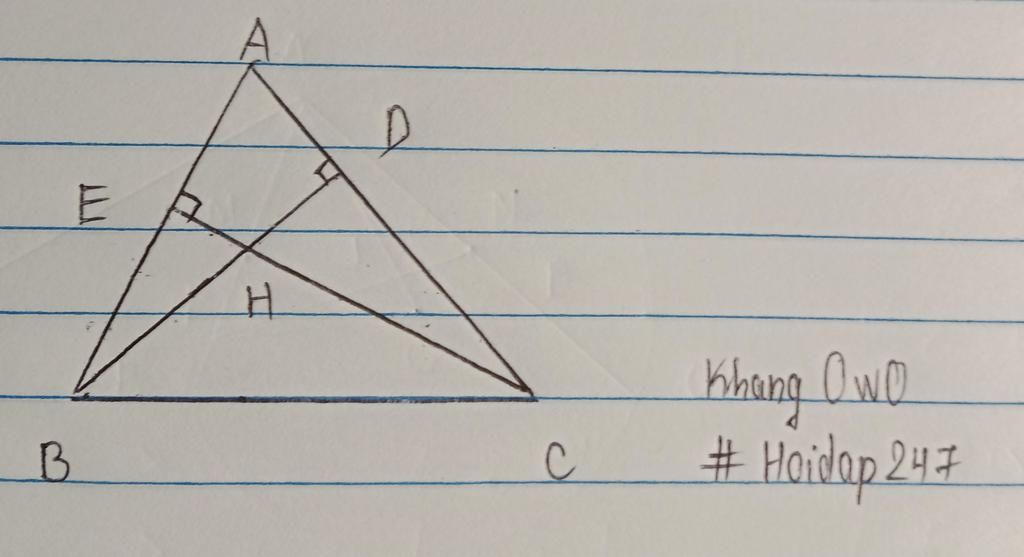 A
D
E
H
Khang OwO
B
C
# Hoidap247